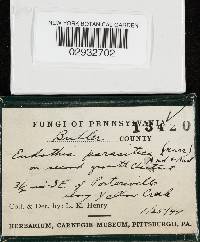 NEW YORK BOTANICAL GARDEN
02932702
FUNGI OF PENNSYLVANIA
13420
Butler COUNTY
Endothia parasitica (Murr.)
And. & And.
on second growth Chestnut
3½ mi. SE. of Portersville
Coll. & Det. by: L. K. Henry
HERBARIUM, CARNEGIE MUSEUM, PITTSBURGH, PA.